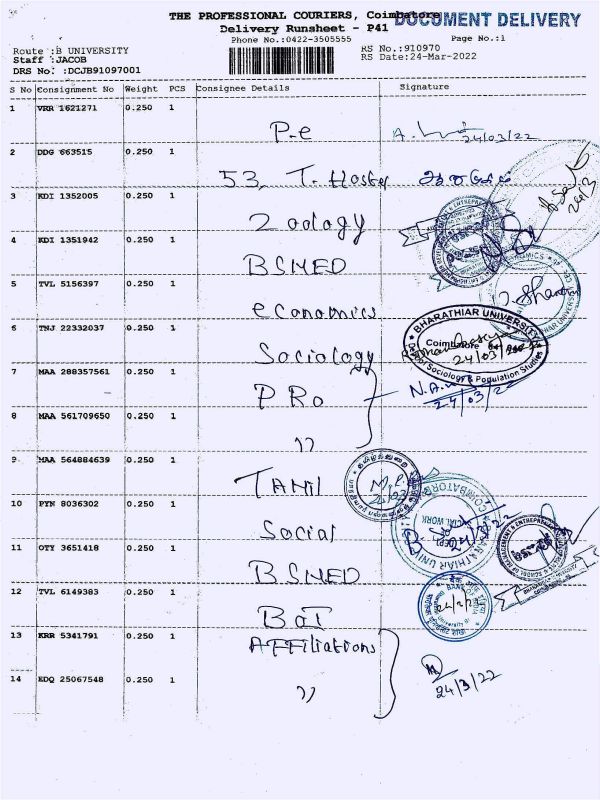 THE PROFESSIONAL COURIERS, Coimbatore
DOCUMENT DELIVERY
Delivery Runsheet - P41
Phone No.:0422-3505555
Page No.:1
Route :B UNIVERSITY
RS No.:910970
Staff :JACOB
RS Date:24-Mar-2022
DRS No. :DCJB91097001
S No Consignment No Weight PCS Consignee Details Signature
1 VRR 1621271 0.250 1
P.e 24/03/22
2 DDG 663515 0.250 1
53, T. Hostel
3 KDI 1352005 0.250 1
Zoology
4 KDI 1351942 0.250 1
BSMED
5 TVL 5156397 0.250 1
economics
6 TNJ 22332037 0.250 1
BHARATHIAR UNIVERSITY
Coimbatore
Sociology 24/03/
Sociology & Population Studies
7 MAA 288357561 0.250 1
PRO 24/03/22
8 MAA 561709650 0.250 1
"
9 MAA 564884639 0.250 1
TAMIL
10 PYN 8036302 0.250 1
Social
11 OTY 3651418 0.250 1
BSMED
12 TVL 6149383 0.250 1
BOI
13 KRR 5341791 0.250 1
Affiliations
14 EDQ 25067548 0.250 1
" 24/3/22